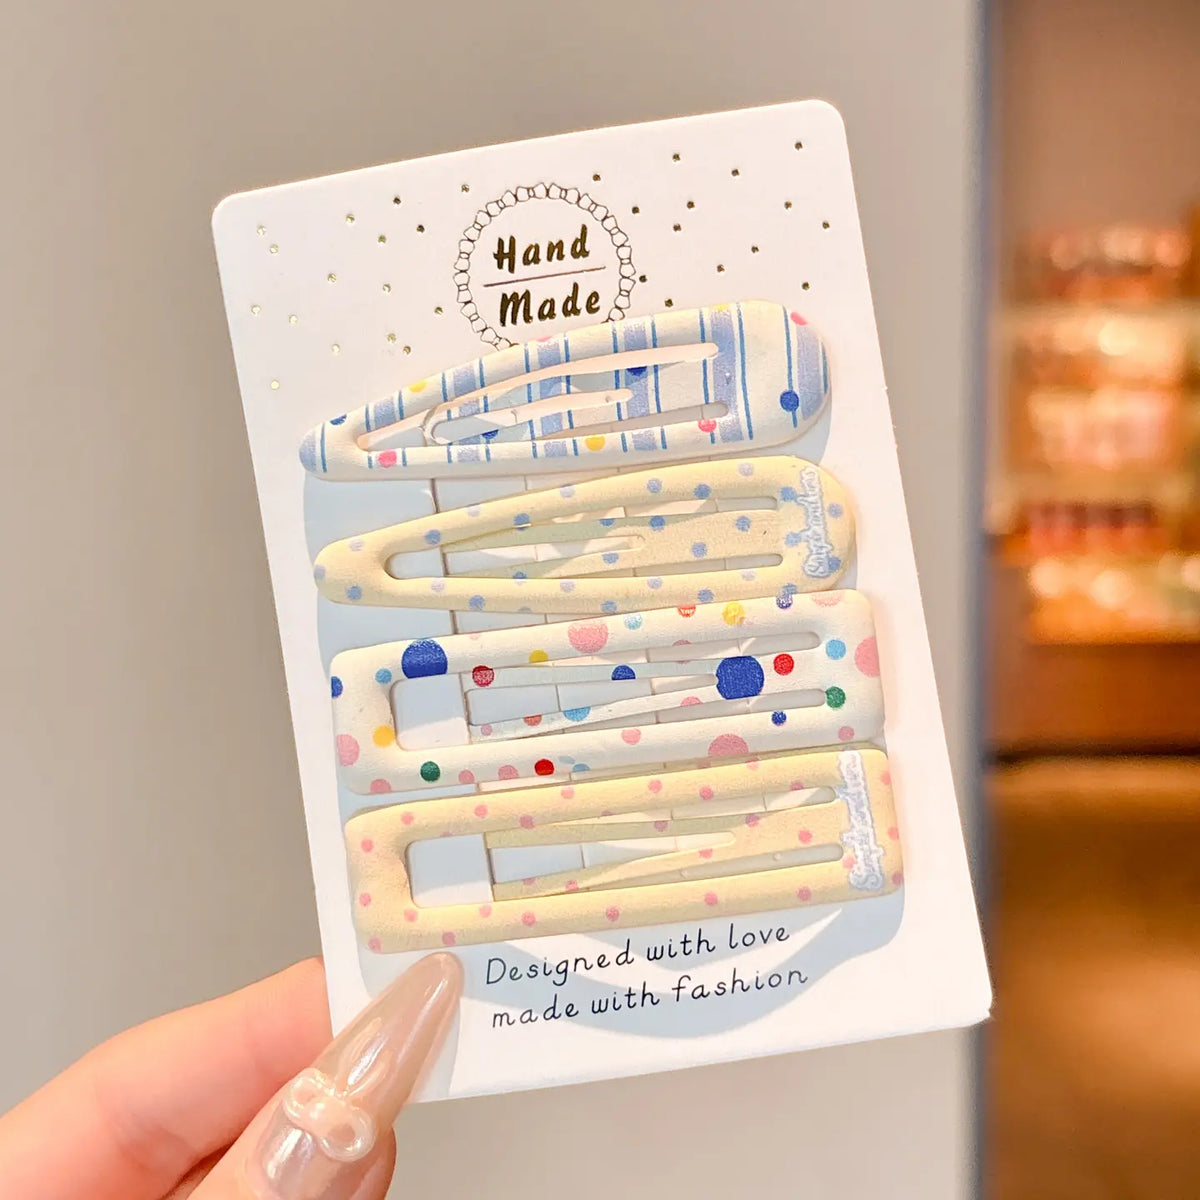 Hand
Made
Designed with love
made with fashion